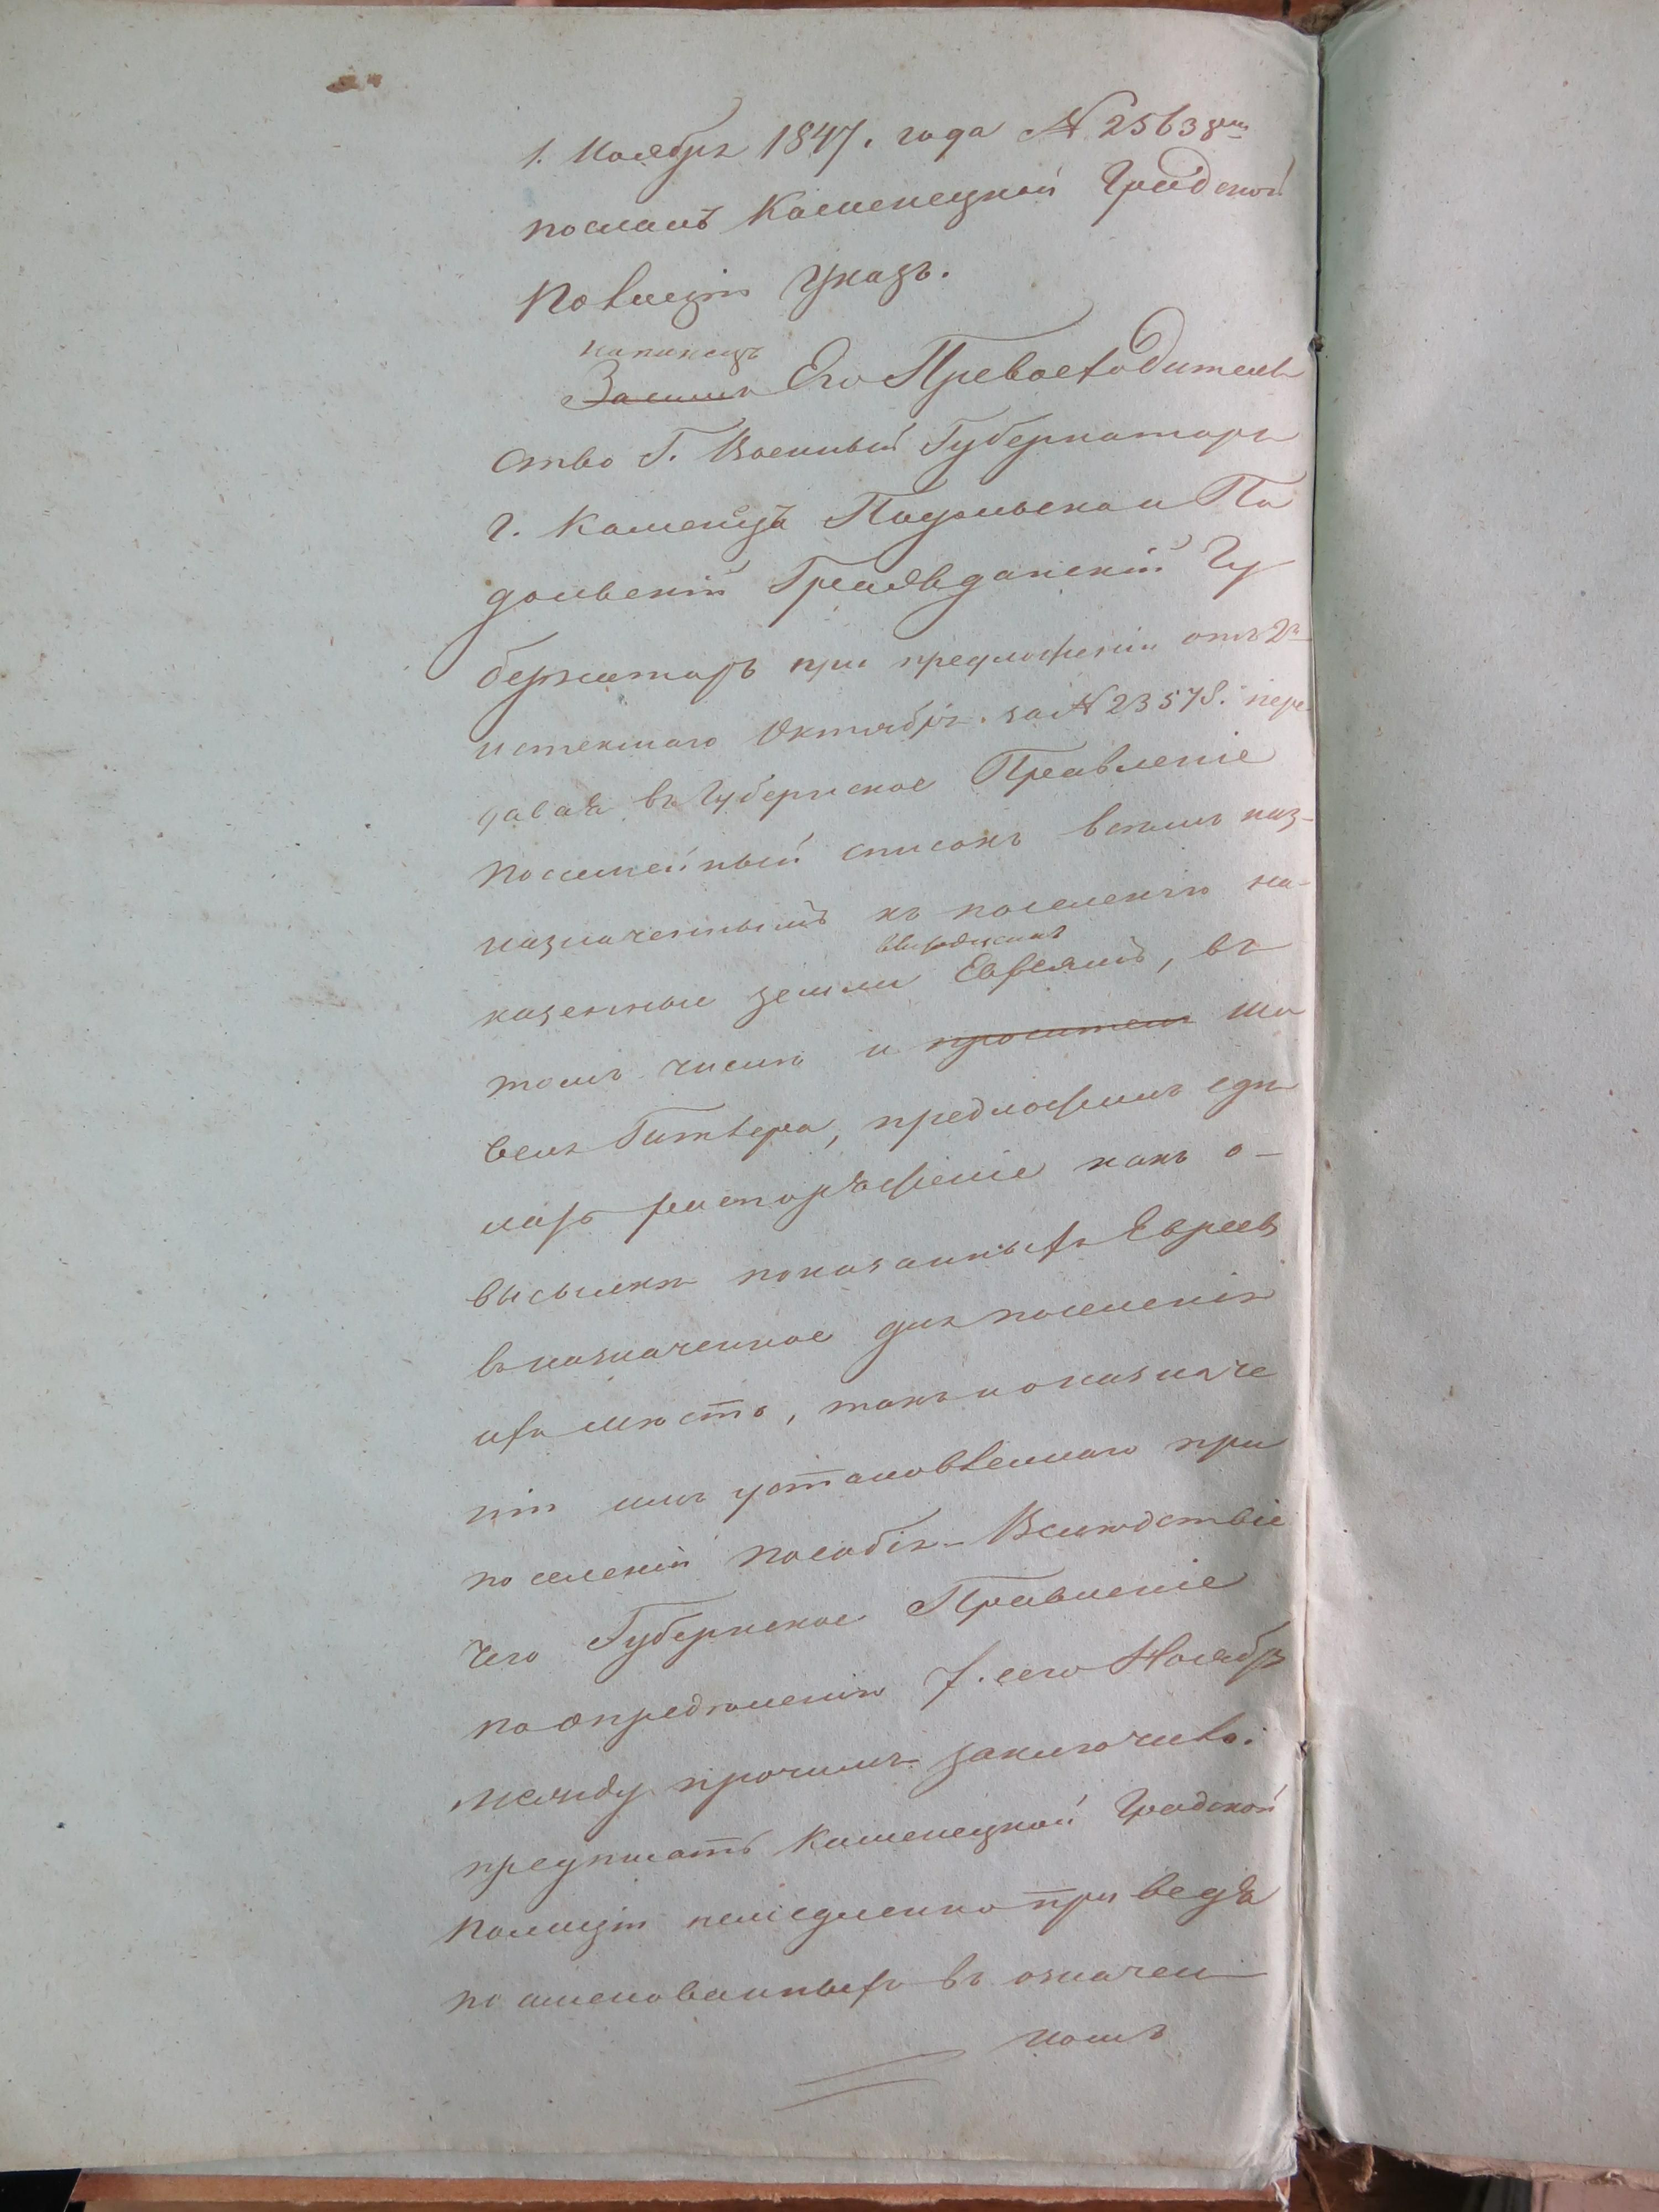 1. Ноября 1847. года № 2563
посланъ Каменецкой Градской
Полиціи Указъ.
наконецъ
Его Превосходитель
ство Г. Военный Губернаторъ
г. Каменца Подольска и По
дольскій Гражданскій Гу
бернаторъ при предложеніи отъ 2
истекшаго Октября. за № 23578. пере
давая въ Губернское Правленіе
посемейный списокъ всѣмъ
назначеннымъ къ поселенію на
казенныя земли Евреямъ, въ
томъ числѣ и
предложилъ сдѣ
лать распоряженіе какъ о
высылкѣ показанныхъ Евреевъ
въ назначенное для поселенія
ихъ мѣсто, такъ и о назначе
ніи имъ установленнаго при
поселеніи пособія – Вслѣдствіе
чего Губернское Правленіе
по опредѣленію 7. сего Ноября
между прочимъ заключило:
предписать Каменецкой Градской
Полиціи немедленно приведя
поименованныхъ въ означен
номъ